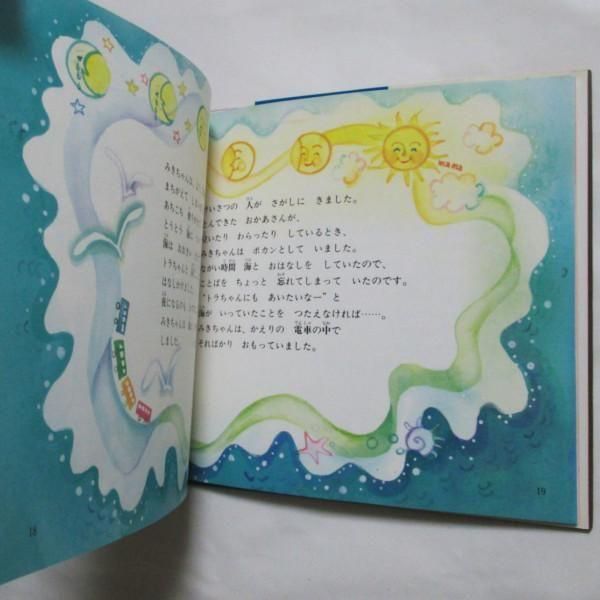 みきちゃんは、
まちがえて、
あちこち
とうとう 海に
海は
トラちゃんと
はなしかけました。
夜になるのも
みきちゃんは
しました。
18
けいさつの 人が さがしに きました。
とんできた おかあさんが、
ないたり わらったり しているとき、
みきちゃんは ポカンとして いました。
ながい時間 海と おはなしを していたので、
ことばを ちょっと 忘れてしまって いたのです。
“トラちゃんにも あいたいなー”と
海が いっていたことを つたえなければ……。
みきちゃんは、かえりの 電車の中で
そればかり おもっていました。
19